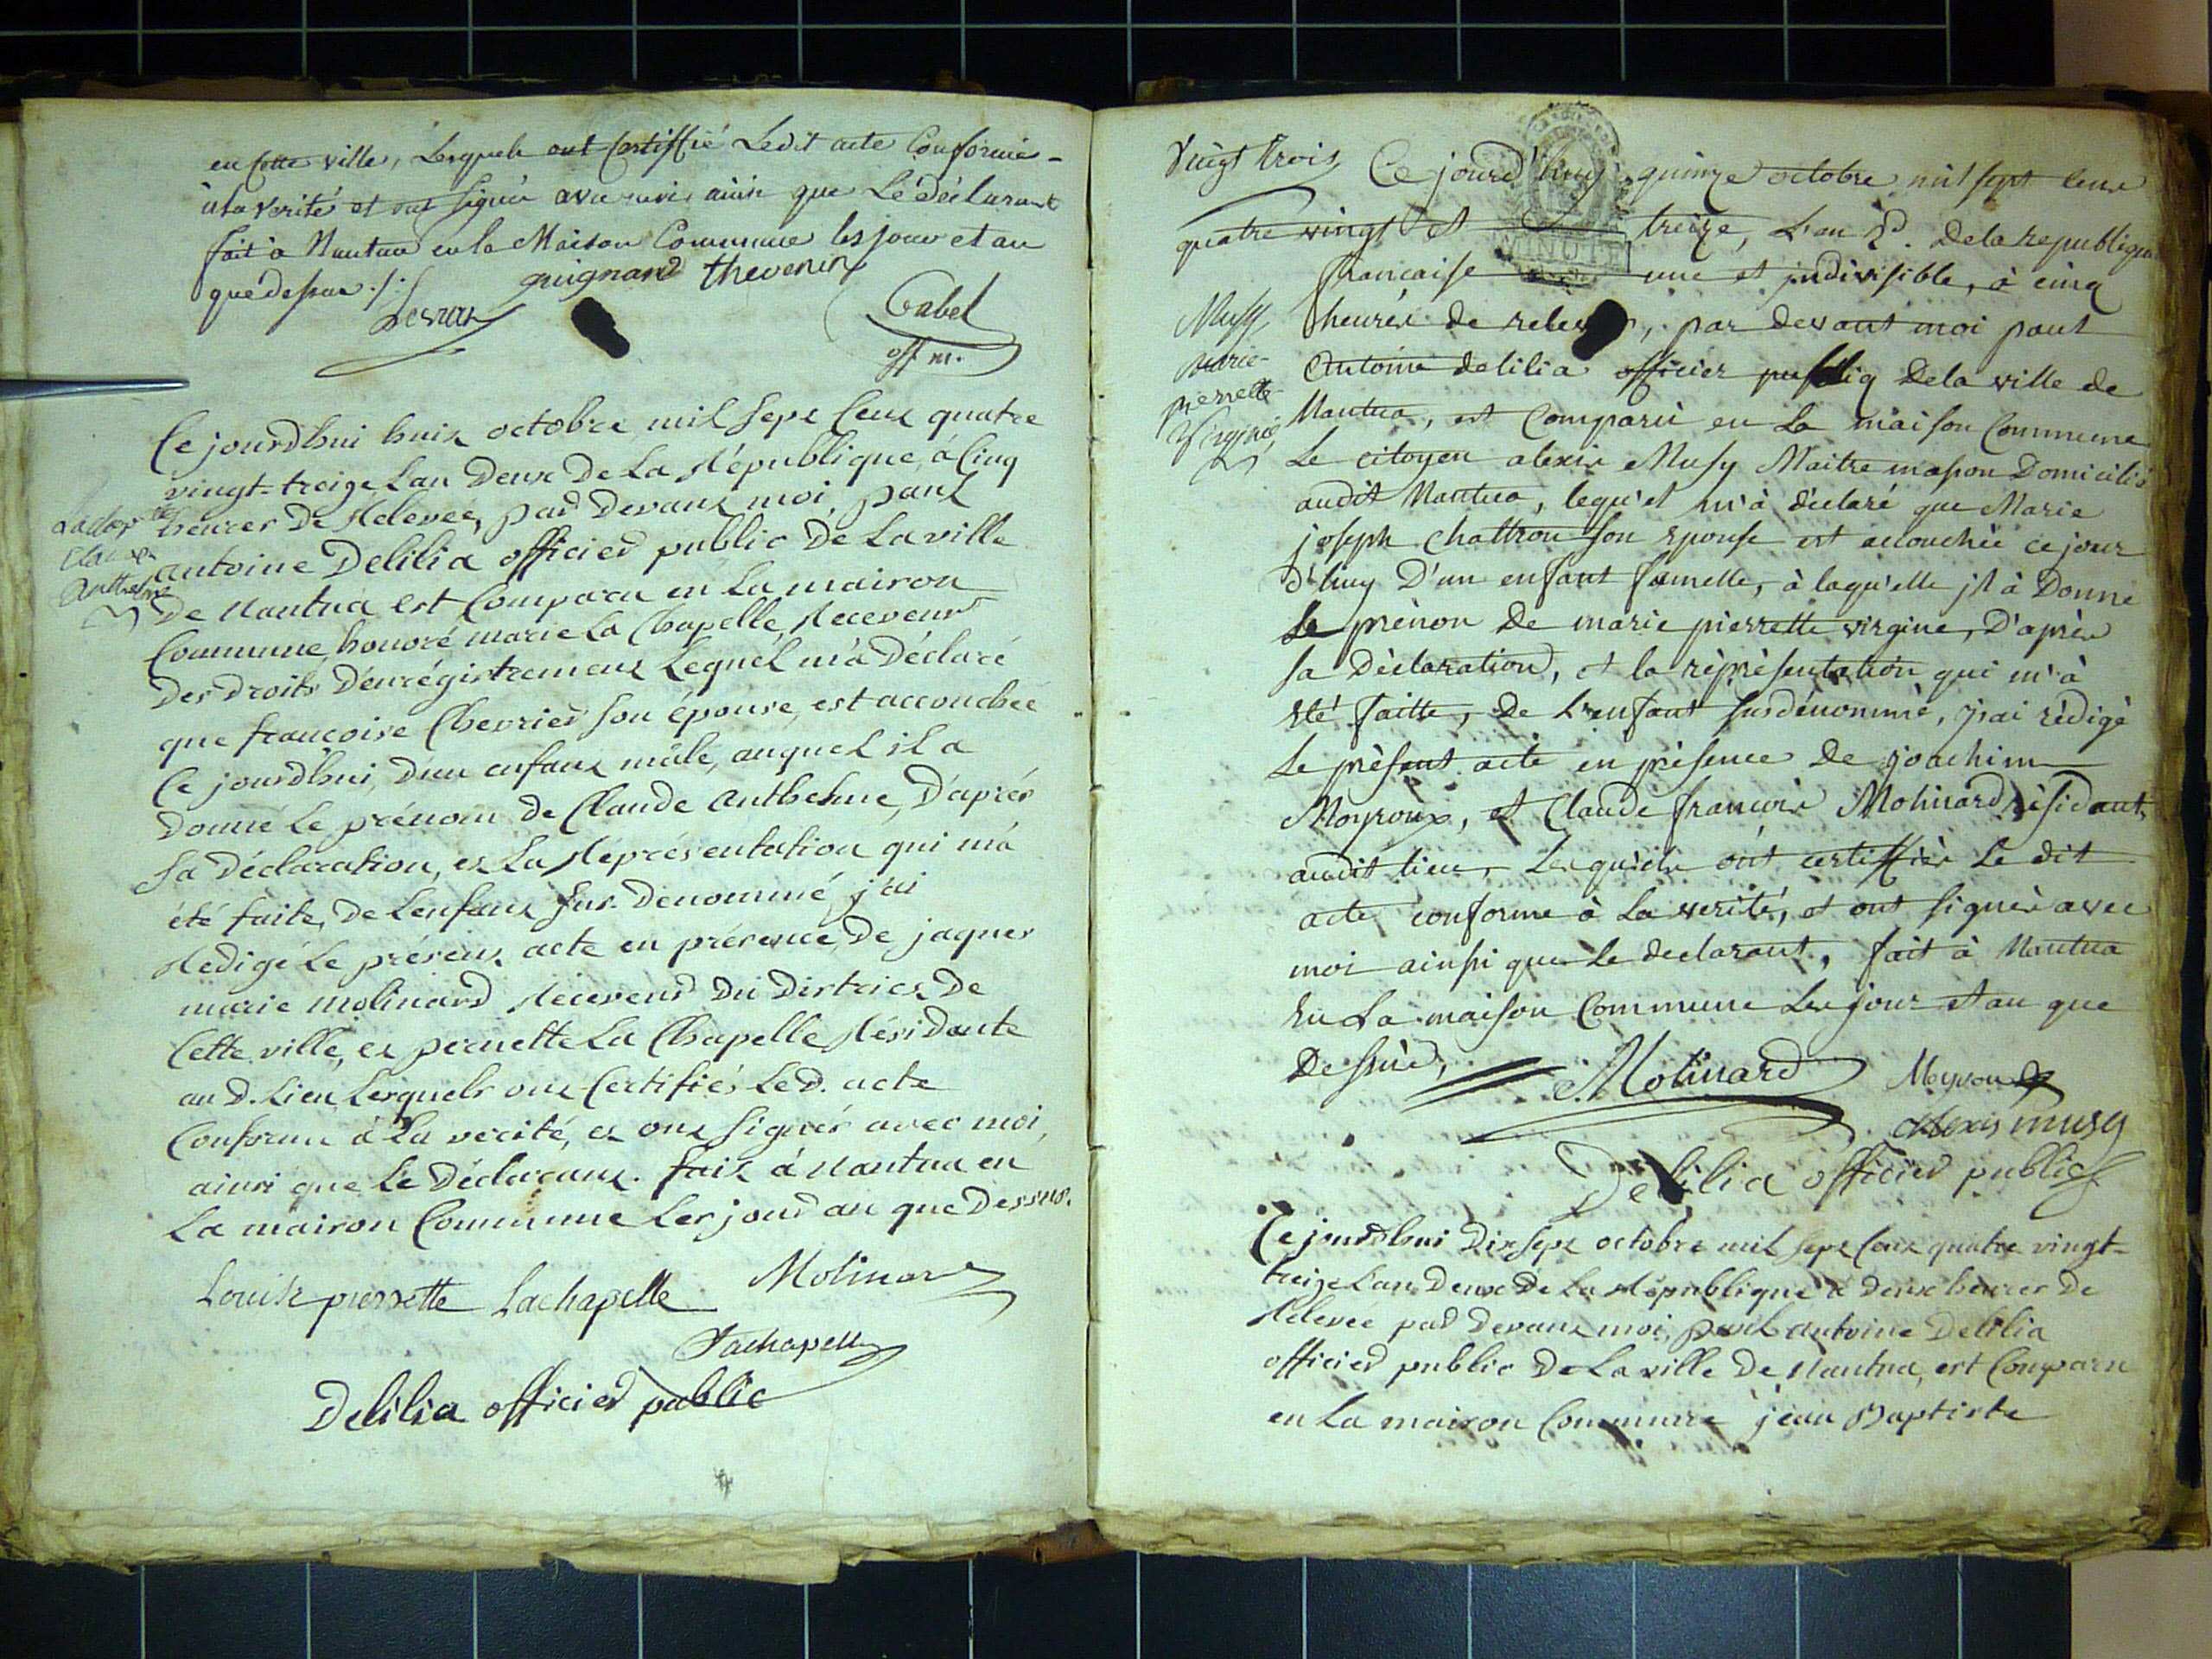 en Cette ville, Lesquels ont Certiffié Ledit acte Conforme-
à la verité et ont signés avec moi ainsi que Le déclarant
fait à Nantua en la Maison Commune les jour et an
que dessus ./.
guignard thevenin
Gabet
off m.
Ce jourd'hui huit octobre mil sept Cent quatre
vingt-treize Lan Deux De La République, à Cinq
heures De Relevée, par Devant moi, paul
antoine Delilia officier public De La ville
De Nantua est Comparu en La maison
Commune, honoré marie La Chapelle, Receveur
Des droits D'enrégistrement Lequel m'a Déclaré
que francoise Chevrier son épouse, est accouchée
Ce jourd'hui, d'un enfant mâle, auquel il a
Donné Le prénom de Claude Anthelme, D'après
Sa Déclaration, et La Représentation qui m'a
été faite, De Lenfant Sus-Denommé, j'ai
Redigé Le présent acte en présence De jaques
marie molinard Receveur Du District De
Cette ville, et pierrette La Chapelle Résidante
au d. Lieu Lesquels ont Certifiés Le d. acte
Conforme à La verité, et ont Signés avec moi,
ainsi que Le Déclarant. fait à Nantua en
La maison Commune Les jour an que Dessus.
Louise pierrette Lachapelle Molinard
Lachapelle
Delilia officier public
Claude
Anthelme
vingt trois
Ce jourd'huy quinze octobre mil sept cent
quatre vingt et treize, L'an 2d. De la republique
francaise une et jndivisible, à cinq
heures de relevée, par devant moi paul
Antoine delilia officier publiq De la ville de
Nantua, est Comparü en La maison Commune
Le citoyen alexis Musy Maitre masson Domicilié
audit Nantua, lequ'el m'à déclaré que Marie
joseph Chattron son epouse est accouchée ce jour
d'huy D'un enfant femelle, à laqu'elle jl à Donné
Le prénon De marie pierrette virgine, D'après
sa Déclaration, et la représentation qui m'à
été faitte, De L'enfant susdénommé, j'ai rédigé
Le présent acte en présence De joachim
Moyroux, et Claude francois Molinard résidants
audit lieu, Lesqu'els ont certiffiés Le dit
acte conforme à La verité, et ont signés avec
moi ainsi que Le declarant, fait à Nantua
En La maison Commune Les jour et an que
Dessus,
Musy
marie
pierrette
Virginie
MINUTE
C. Molinard Moyroux
Alexis musy
Delilia officier public
Ce jourd'hui Dix sept octobre mil sept Cent quatre vingt-
treize Lan Deux De La République à Deux heures De
Relevée par Devant moi, paul Antoine Delilia
officier public De La ville De Nantua, est Comparu
en La maison Commune jean Baptiste